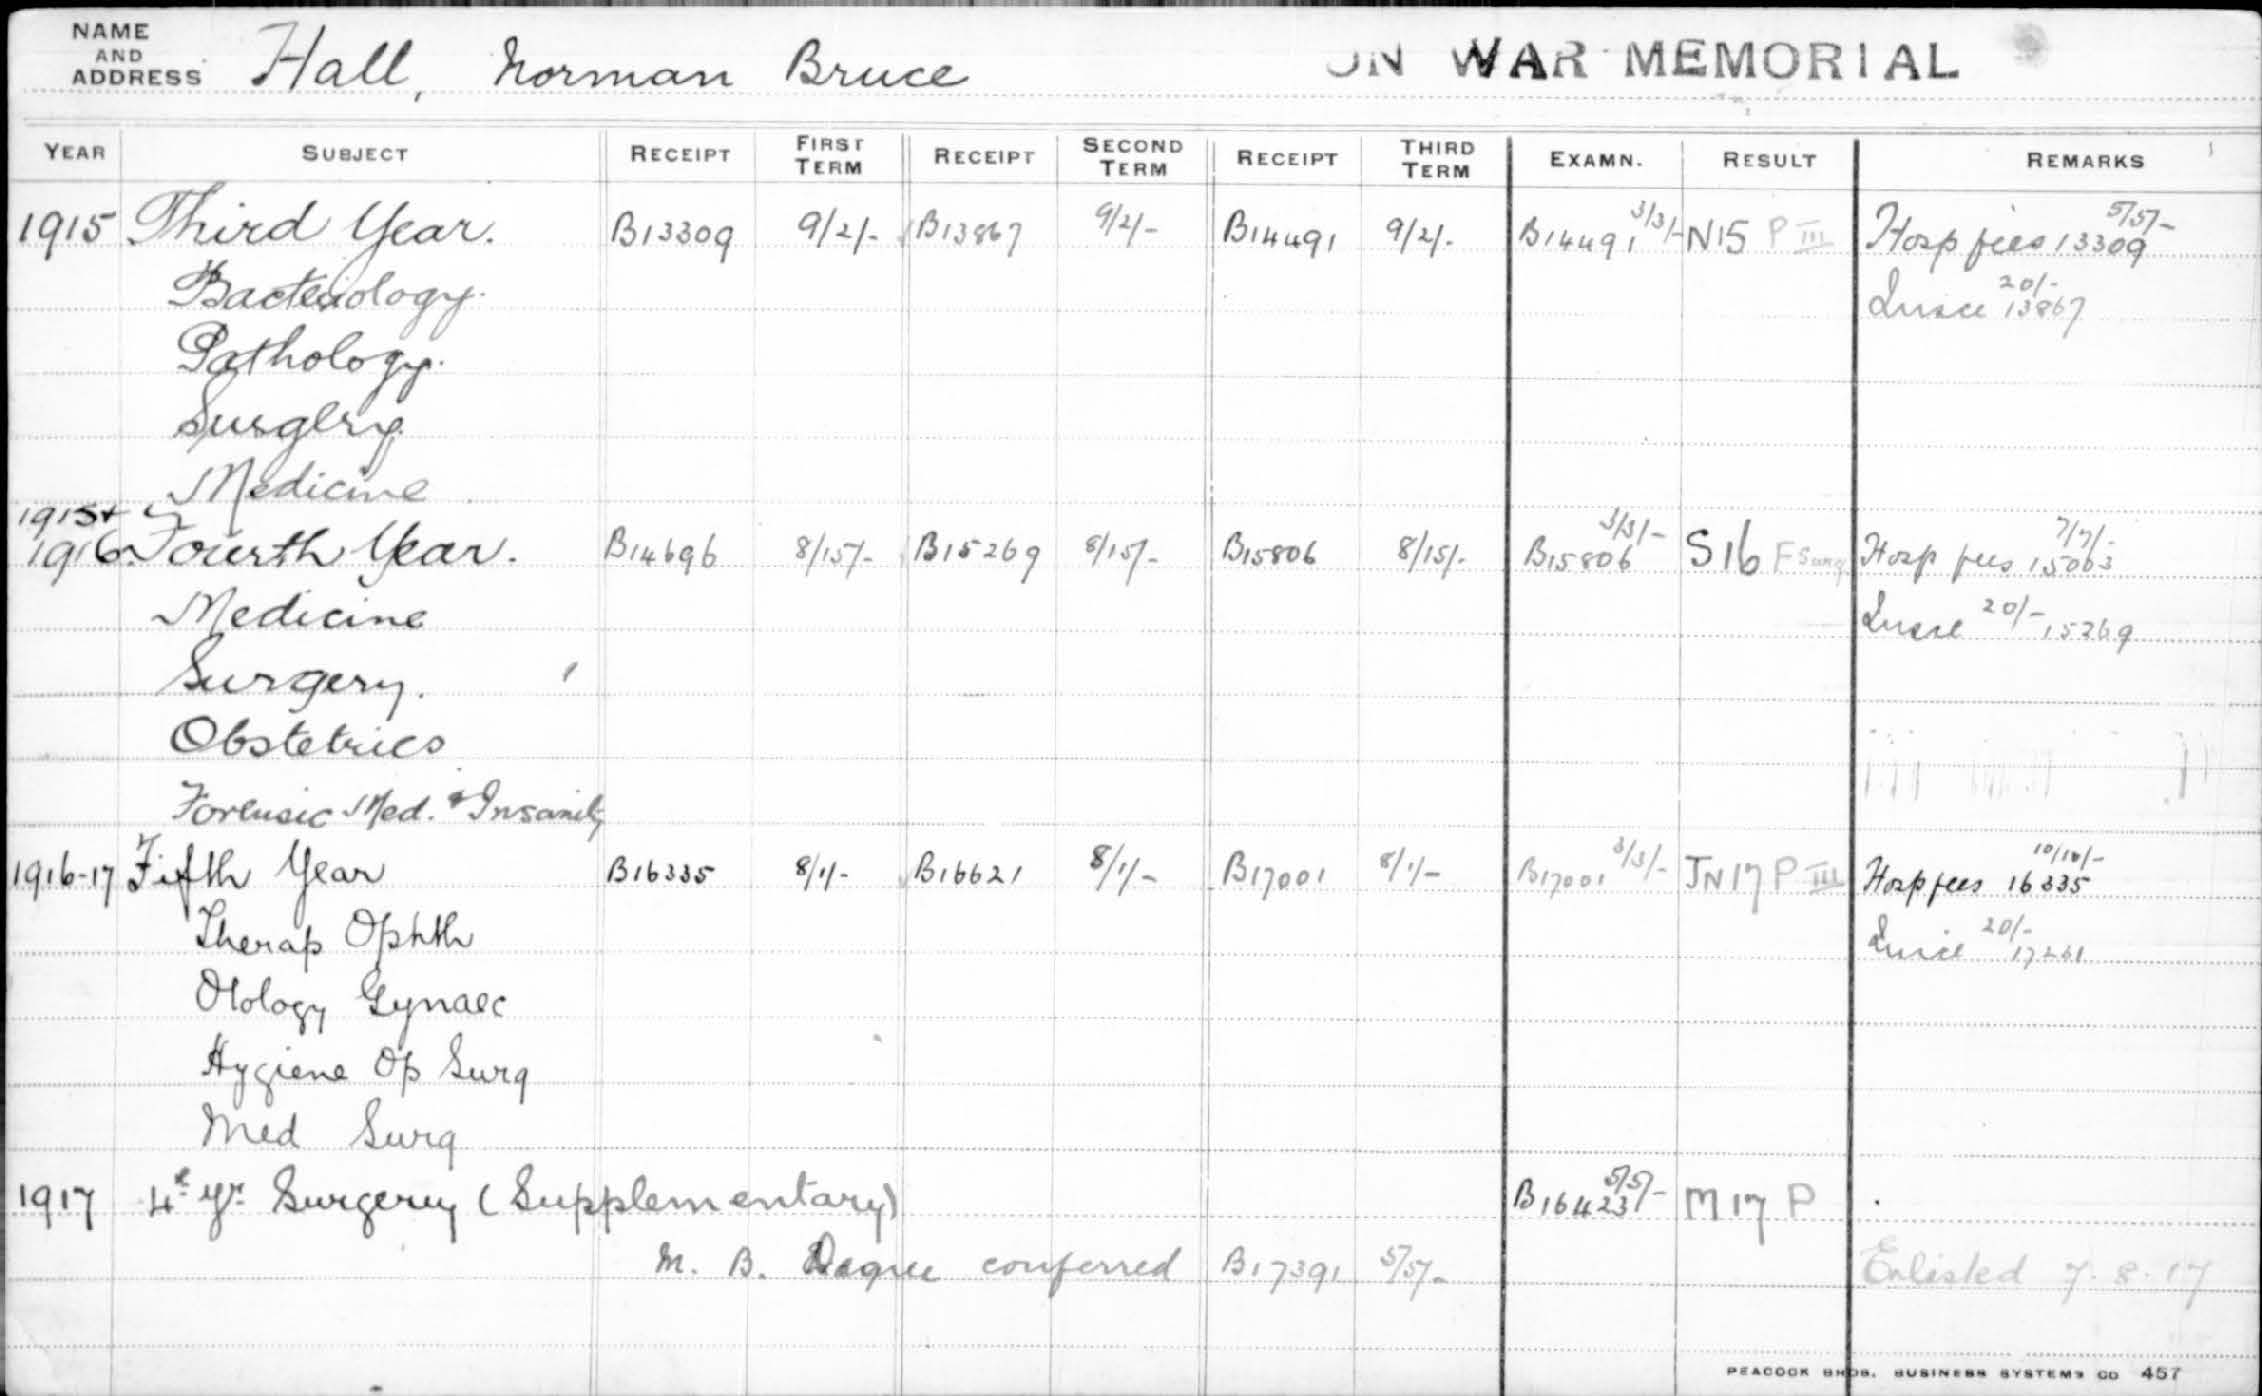 NAME AND ADDRESS Hall, Norman Bruce ON WAR MEMORIAL
YEAR SUBJECT RECEIPT FIRST TERM RECEIPT SECOND TERM RECEIPT THIRD TERM EXAMN. RESULT REMARKS
1915 Third Year. B13309 9/2/- B13867 9/2/- B14491 9/2/- B14491 3/3/- N15 P III Hosp fees 13309 5/5/-
Bacteriology. 20/- 13867
Pathology.
Surgery
Medicine
1915+
1916 Fourth Year. B14696 8/15/- B15269 8/15/- B15806 8/15/- B15806 3/3/- S16 F Surg Hosp fees 15063 7/7/-
Medicine 20/- 15269
Surgery.
Obstetrics
Forensic Med. & Insanity
1916-17 Fifth Year B16335 8/1/- B16621 8/1/- B17001 8/1/- B17001 3/3/- JN17 P III Hosp fees 16335 10/10/-
Therap Ophth 20/- 17261
Otology Gynaec
Hygiene Op Surg
Med Surg
1917 4th yr. Surgery (Supplementary) B16423 5/5/- M17 P
M. B. Degree conferred B17391 5/5/- Enlisted 7.8.17
PEACOCK BROS. BUSINESS SYSTEMS CO 457